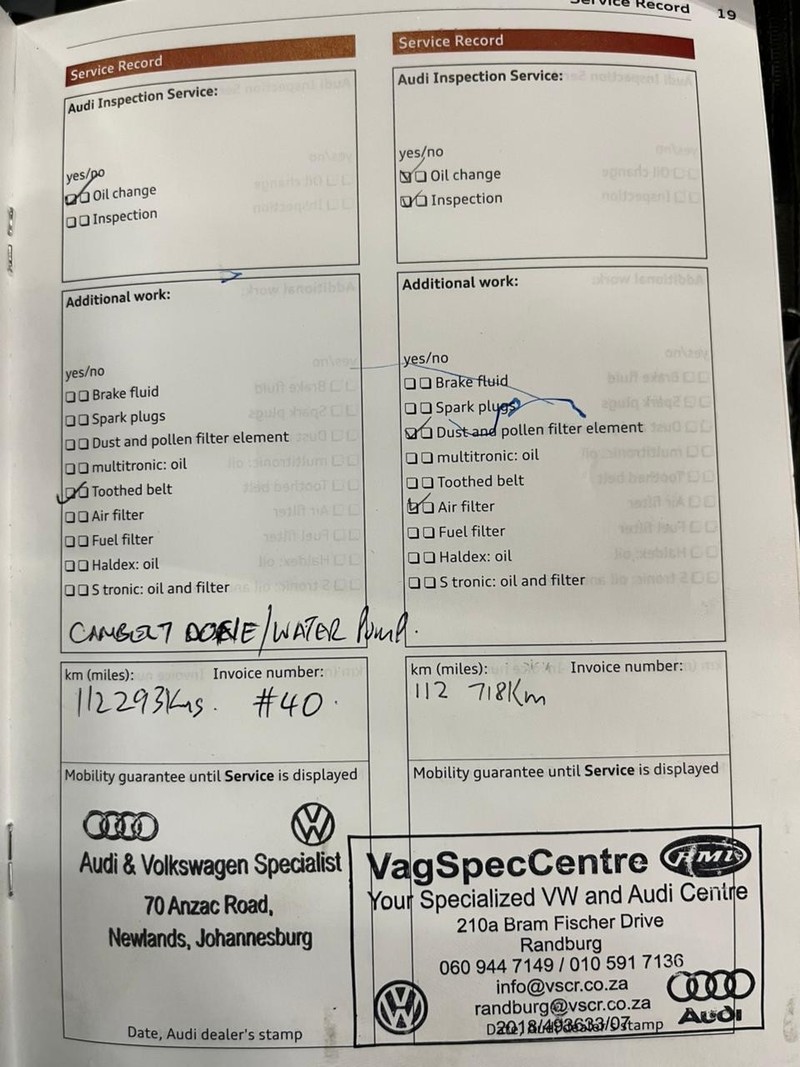 Service Record 19
Service Record
Audi Inspection Service:
yes/no
Oil change
Inspection
Additional work:
yes/no
Brake fluid
Spark plugs
Dust and pollen filter element
multitronic: oil
Toothed belt
Air filter
Fuel filter
Haldex: oil
S tronic: oil and filter
CAMBELT DONE/WATER PUMP.
km (miles): Invoice number:
112293Kms. #40.
Mobility guarantee until Service is displayed
Audi & Volkswagen Specialist
70 Anzac Road,
Newlands, Johannesburg
Date, Audi dealer's stamp
Service Record
Audi Inspection Service:
yes/no
Oil change
Inspection
Additional work:
yes/no
Brake fluid
Spark plugs
Dust and pollen filter element
multitronic: oil
Toothed belt
Air filter
Fuel filter
Haldex: oil
S tronic: oil and filter
km (miles): Invoice number:
112 718Km
Mobility guarantee until Service is displayed
VagSpecCentre RMI
Your Specialized VW and Audi Centre
210a Bram Fischer Drive
Randburg
060 944 7149 / 010 591 7136
info@vscr.co.za
randburg@vscr.co.za
Date, Audi dealer's stamp
2018/493633/07
Audi